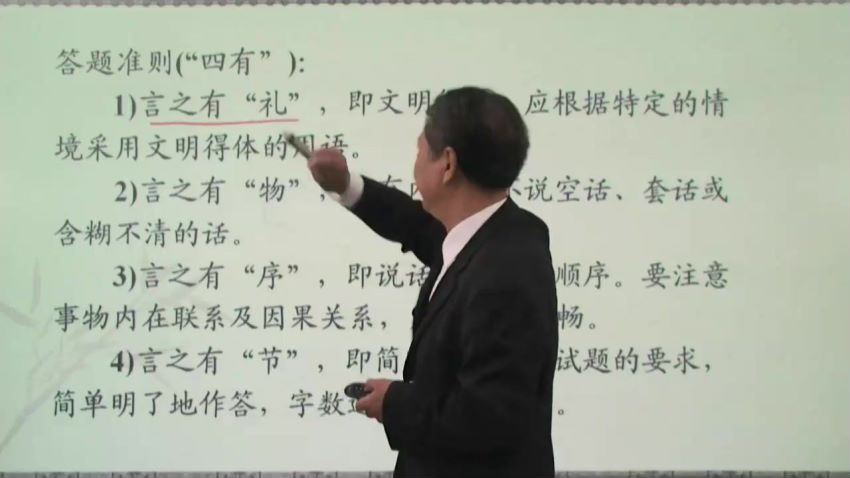 答题准则(“四有”):
1)言之有“礼”，即文明 应根据特定的情
境采用文明得体的用语。
2)言之有“物”， 说空话、套话或
含糊不清的话。
3)言之有“序”，即说话 顺序。要注意
事物内在联系及因果关系， 畅。
4)言之有“节”，即简 试题的要求，
简单明了地作答，字数 。